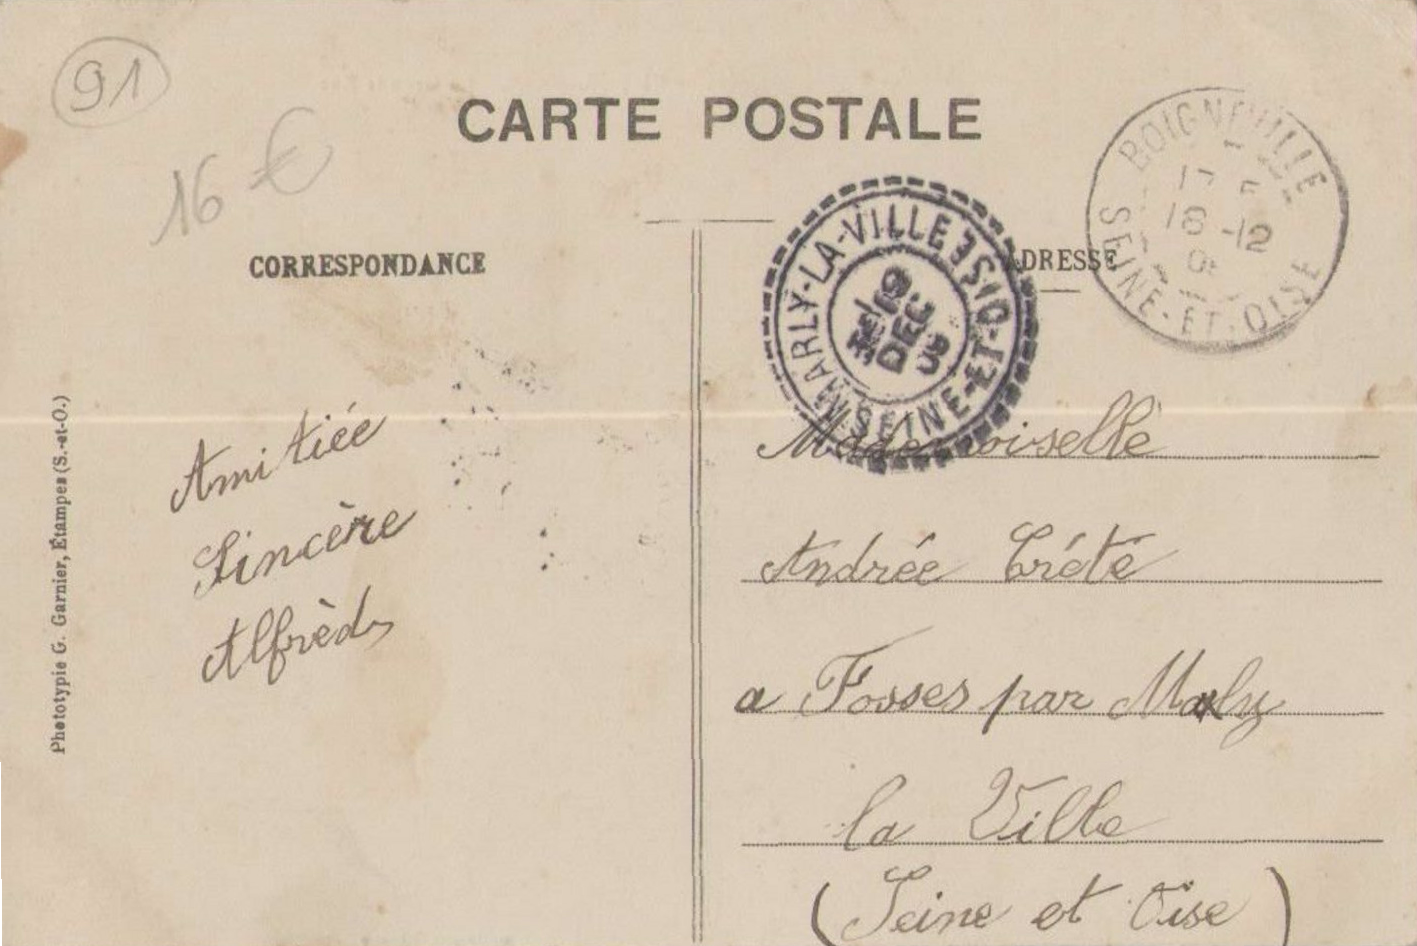 91
16 €
CARTE POSTALE
CORRESPONDANCE
ADRESSE
BOIGNEVILLE
18 -12
SEINE-ET-OISE
MARLY-LA-VILLE
19
DEC
SEINE-ET-OISE
Amitiée
Sincère
Alfrèd
Mademoiselle
Andrée Crété
a Fosses par Marly
la Ville
(Seine et Oise)
Phototypie G. Garnier, Étampes (S.-et-O.)